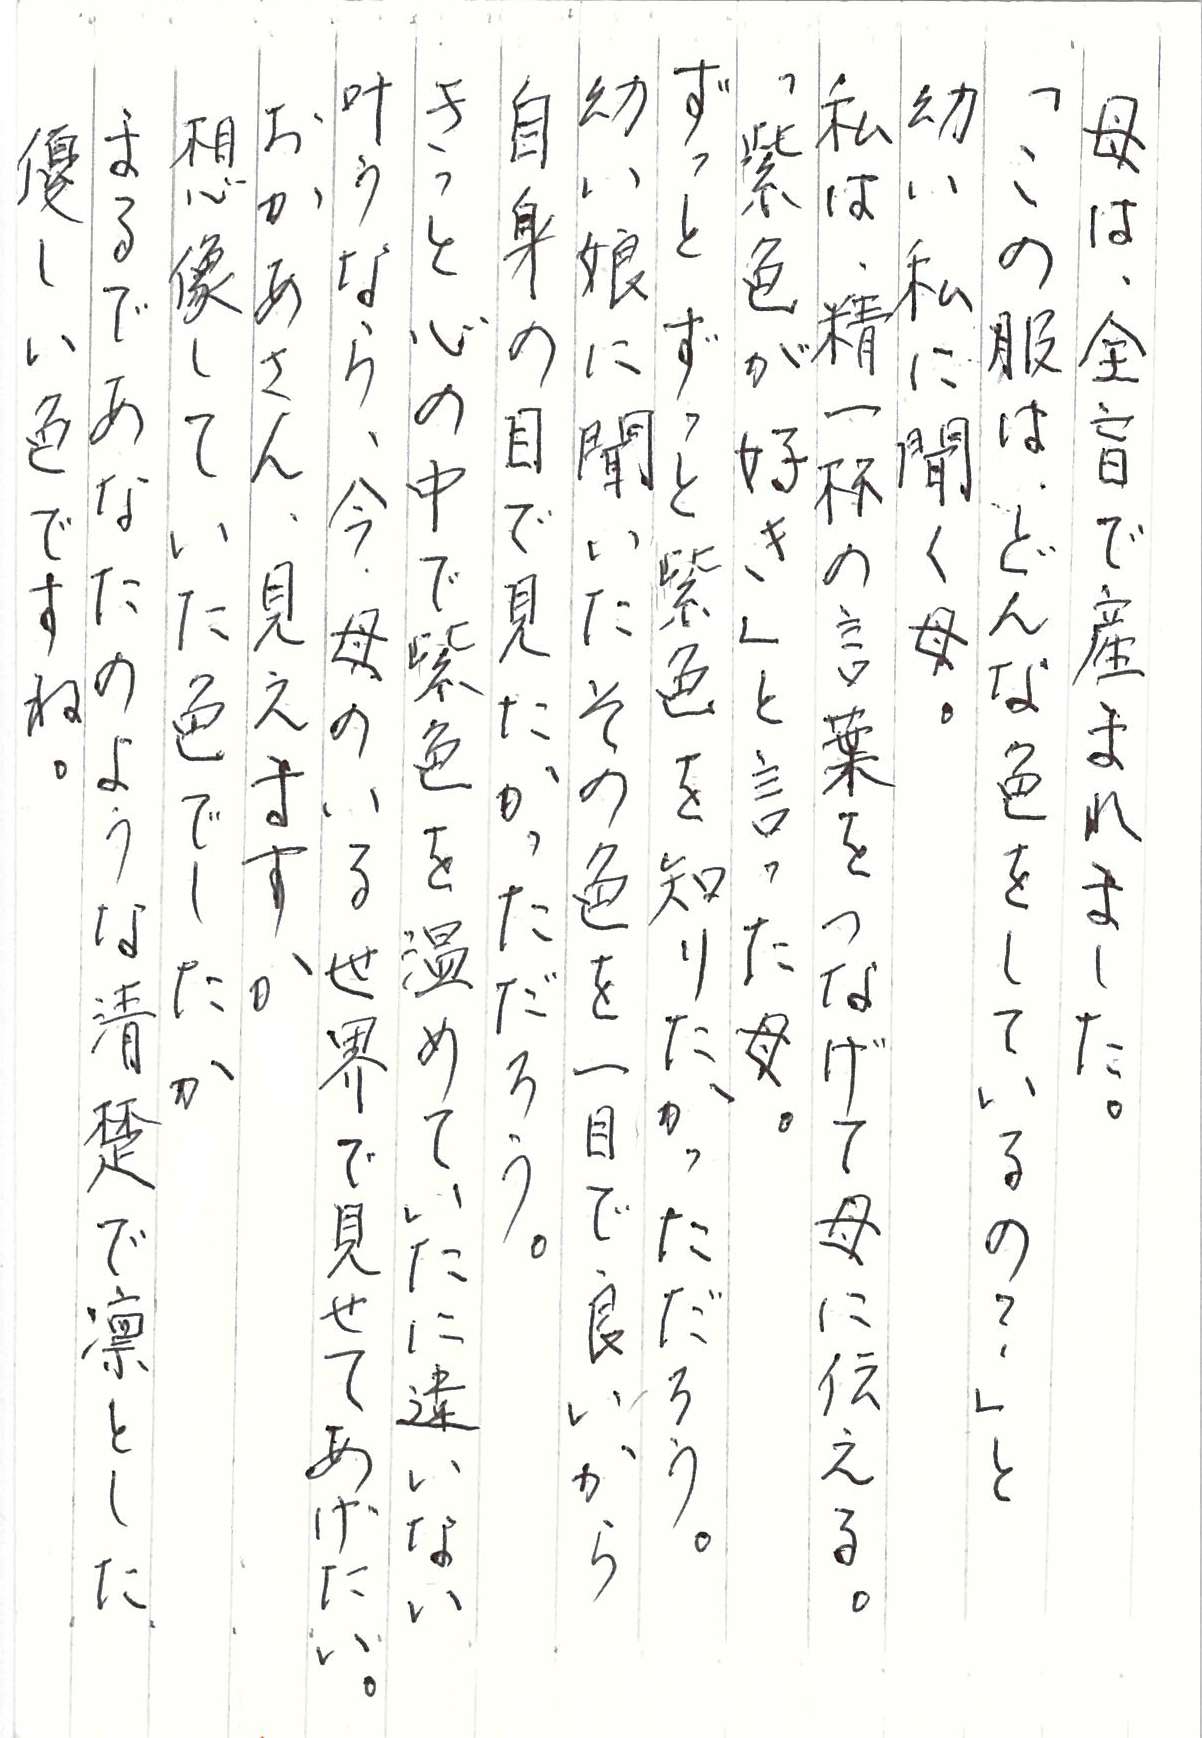 母は、全盲で産まれました。
「この服は、どんな色をしているの？」と
幼い私に聞く母。
私は、精一杯の言葉をつなげて母に伝える。
「紫色が好き」と言った母。
ずっとずっと紫色を知りたかっただろう。
幼い娘に聞いたその色を一目で良いから
自身の目で見たかっただろう。
きっと心の中で紫色を温めていたに違いない
叶うなら、今、母のいる世界で見せてあげたい。
おかあさん、見えますか
想像していた色でしたか
まるであなたのような清楚で凛とした
優しい色ですね。